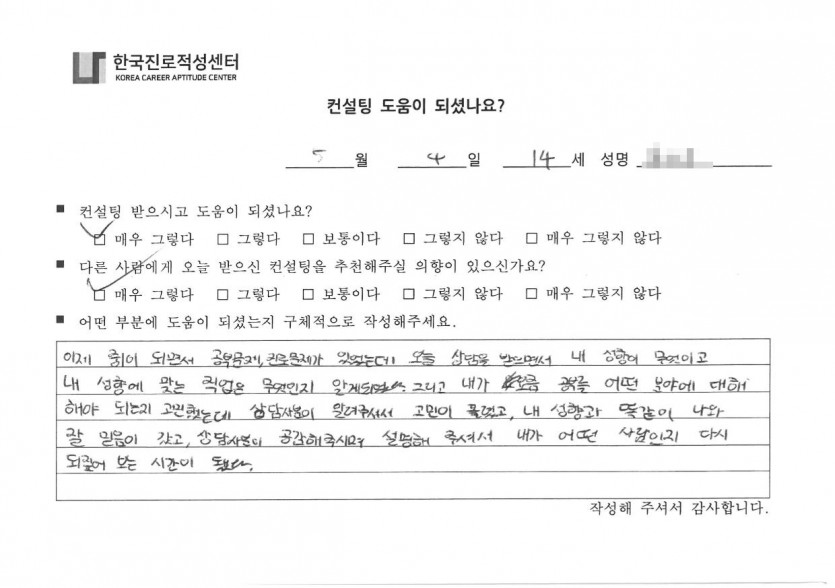 한국진로적성센터
KOREA CAREER APTITUDE CENTER
컨설팅 도움이 되셨나요?
5 월 4 일 14 세 성명
■ 컨설팅 받으시고 도움이 되셨나요?
☑ 매우 그렇다 □ 그렇다 □ 보통이다 □ 그렇지 않다 □ 매우 그렇지 않다
■ 다른 사람에게 오늘 받으신 컨설팅을 추천해주실 의향이 있으신가요?
☑ 매우 그렇다 □ 그렇다 □ 보통이다 □ 그렇지 않다 □ 매우 그렇지 않다
■ 어떤 부분에 도움이 되셨는지 구체적으로 작성해주세요.
이제 중1이 되면서 공부문제, 진로문제가 있었는데 오늘 상담을 받으면서 내 성향이 무엇이고
내 성향에 맞는 직업은 무엇인지 알게되었다. 그리고 내가 요즘 공부를 어떤 분야에 대해
해야 되는지 고민했는데 상담사님이 알려주셔서 고민이 풀렸고, 내 성향과 똑같이 나와
잘 믿음이 갔고, 상담사님이 공감해주시며 설명해 주셔서 내가 어떤 사람인지 다시
되짚어 보는 시간이 됐다.
작성해 주셔서 감사합니다.